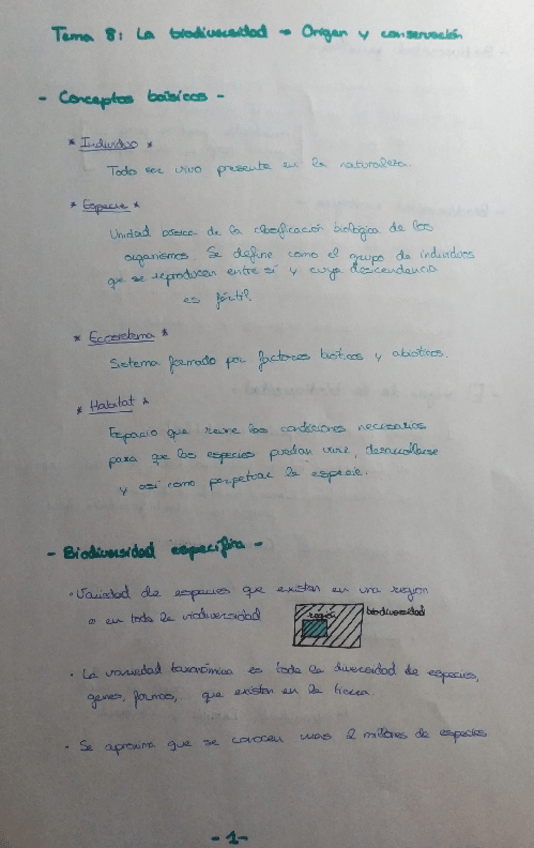 Tema 8: La biodiversidad → Origen y conservación
- Conceptos básicos -
* Individuo *
Todo ser vivo presente en la naturaleza.
* Especie *
Unidad básica de la clasificación biológica de los
organismos. Se define como el grupo de individuos
que se reproducen entre sí y cuya descendencia
es fértil.
* Ecosistema *
Sistema formado por factores bióticos y abióticos.
* Habitat *
Espacio que reune las condiciones necesarias
para que las especies puedan vivir, desarrollarse
y así como perpetuar la especie.
- Biodiversidad específica -
· Variedad de especies que existen en una región
o en toda la biodiversidad
región
biodiversidad
· La variedad taxonómica es toda la diversidad de especies,
genes, formas, que existen en la tierra.
· Se aproxima que se conocen unas 2 millones de especies
- 1 -